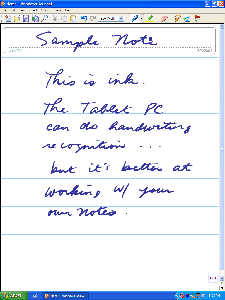 Sample Note
This is ink.
The Tablet PC
can do handwriting
recognition ...
but it's better at
working w/ your
own notes.